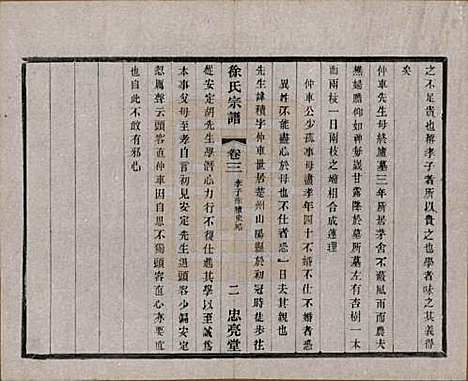 之不足貴也嗟孝子者所以貴之也學者味之其義得
矣
仲車先生母終廬墓三年所居茅舍不蔽風雨而農夫
樵婦瞻仰如神每歲甘露降於墓所墓左有杏樹一本
而兩枝一日兩枝之繪相合成蓮理
仲車公少孤事母盡孝年四十不婚不仕不婚者恐
異姓不能盡心於母也不仕者恐一日去其親也
先生諱積字仲車世居楚州山陽縣於初冠時徒步往
從安定胡先生學潛心力行不復仕進其學以至誠為
本事父母至孝自言初見安定先生退頭容少偏安定
忽厲聲云頭容直仲車因思不獨頭容要直心亦要直
也自此不敢有邪心
徐氏宗譜
卷三
孝子
二
忠亮堂